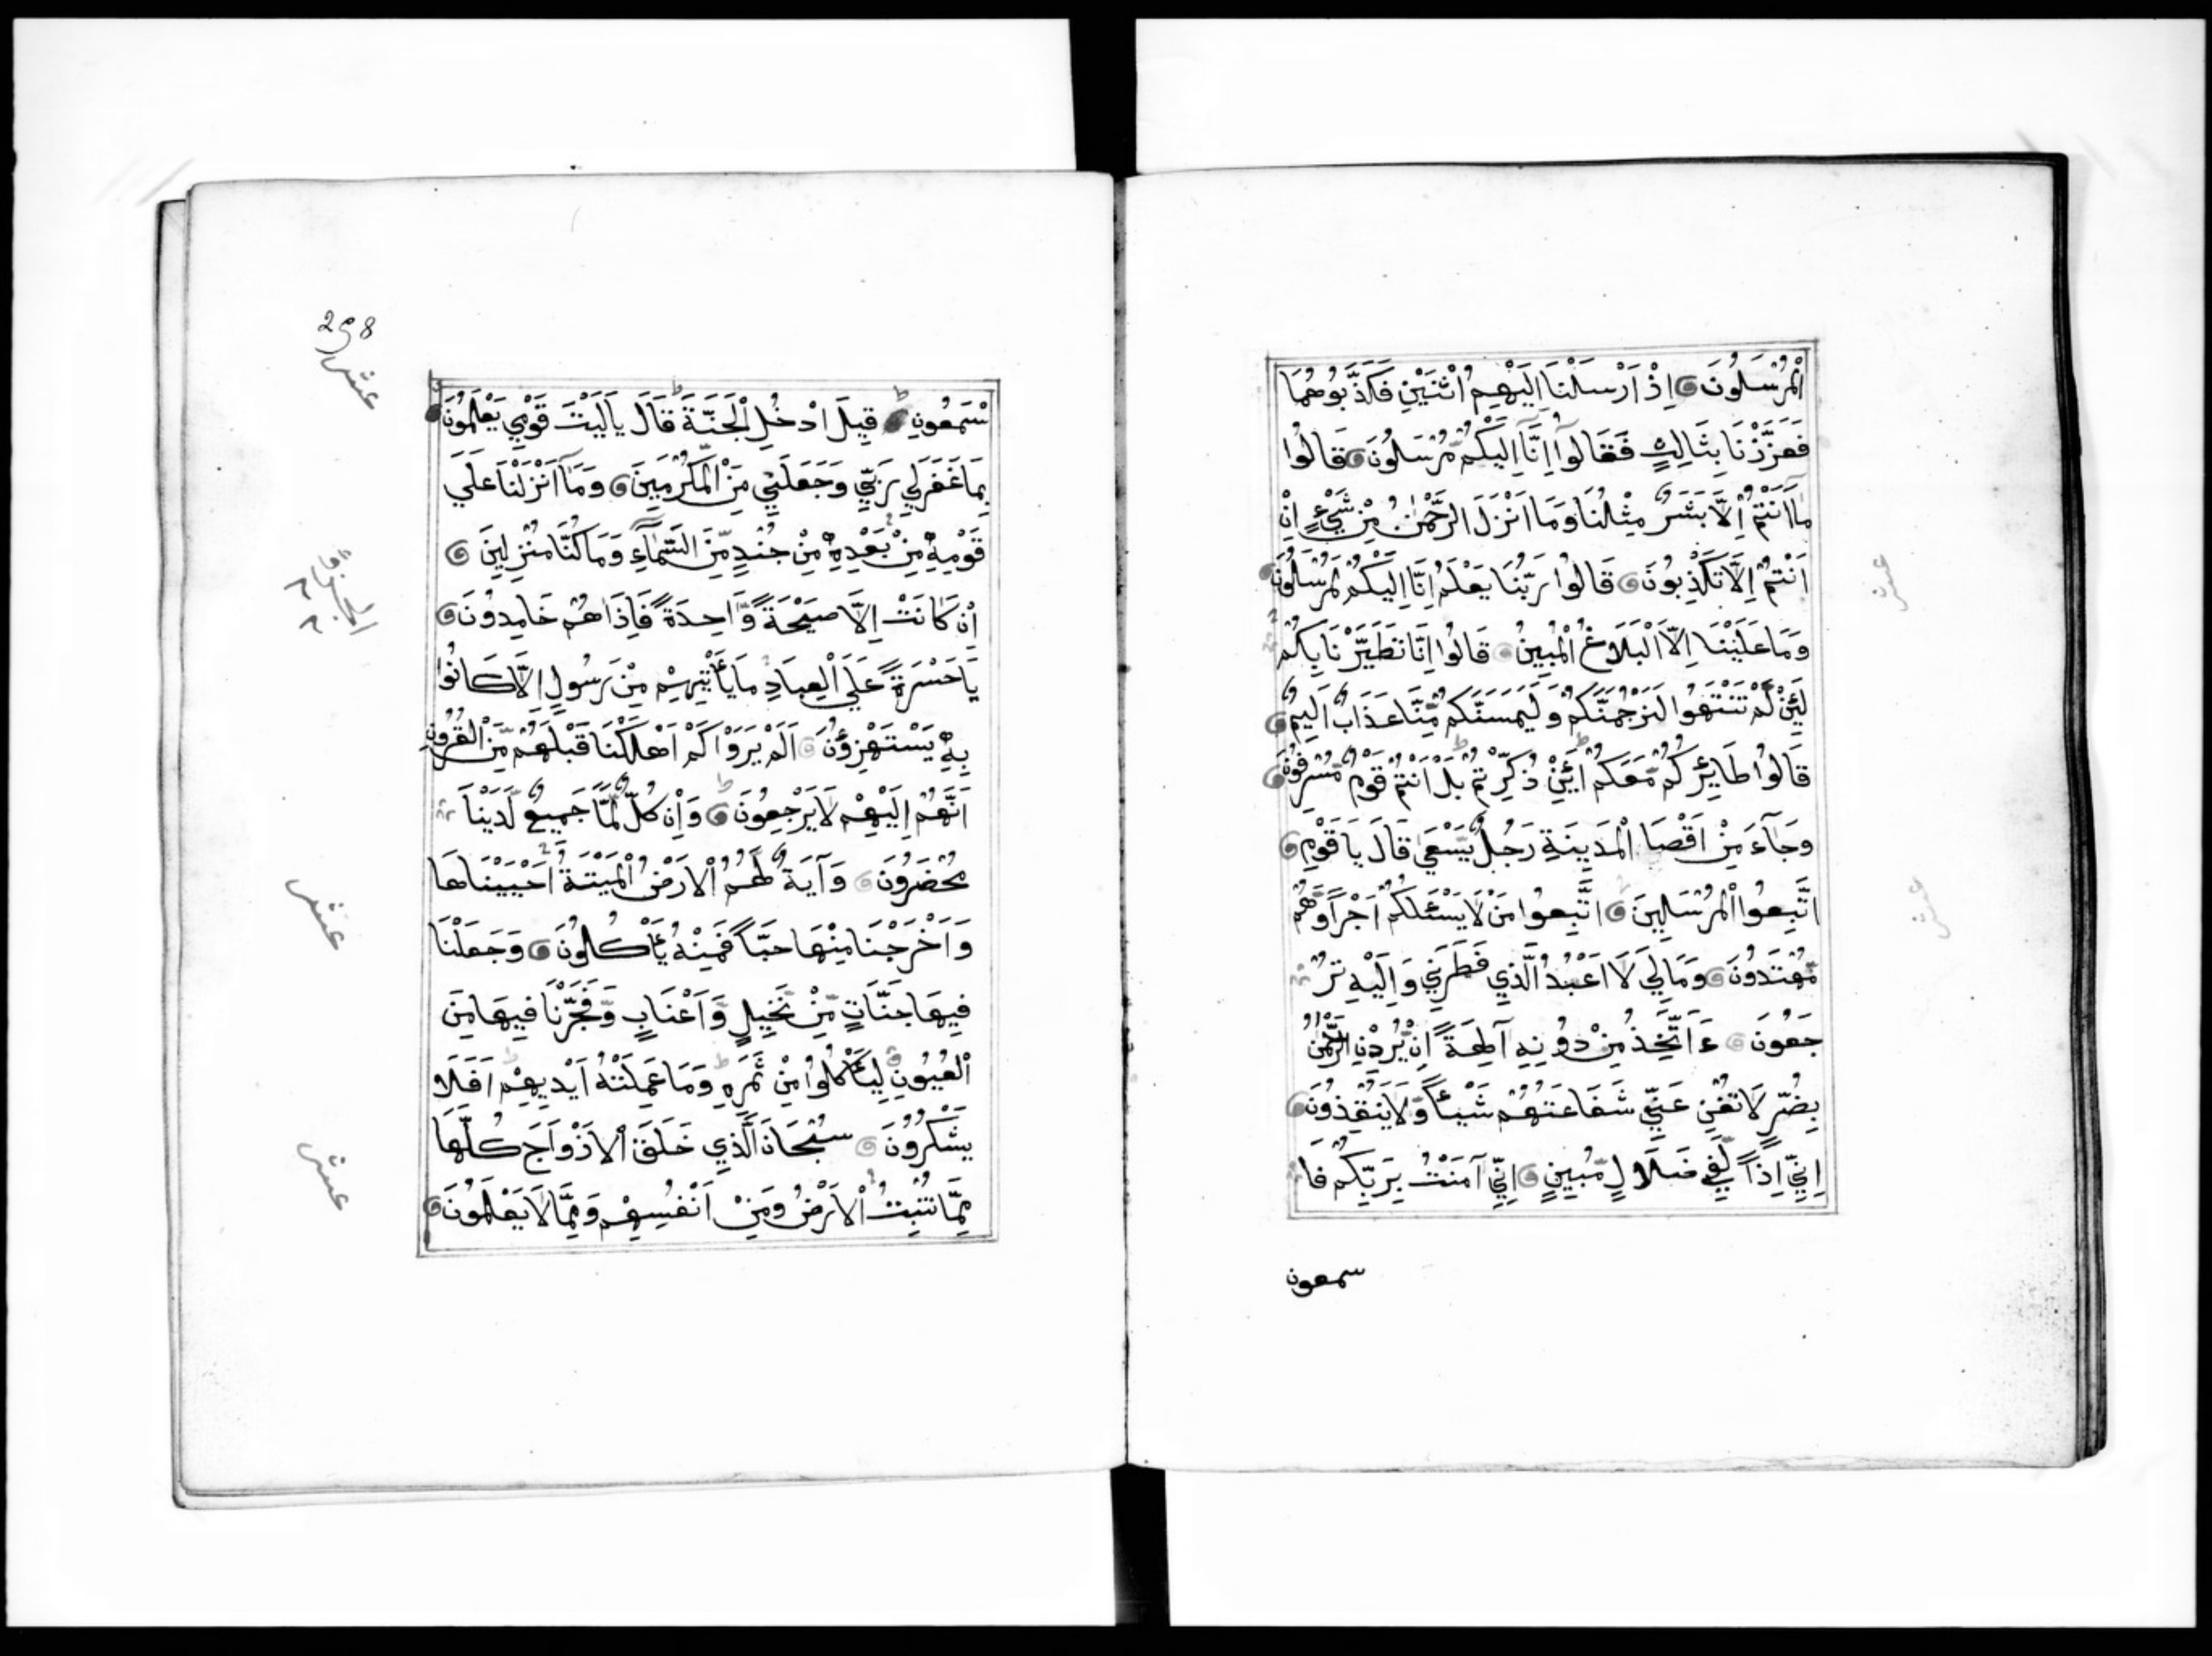 الْمُرْسَلُونَ اِذْ اَرْسَلْنَا اِلَيْهِمُ اثْنَيْنِ فَكَذَّبُوهُمَا
فَعَزَّزْنَا بِثَالِثٍ فَقَالُوآ اِنَّآ اِلَيْكُمْ مُّرْسَلُونَ قَالُوا
مَآ اَنْتُمْ اِلَّا بَشَرٌ مِثْلُنَا وَمَا اَنْزَلَ الرَّحْمٰنُ مِنْ شَيْءٍ اِنْ
اَنْتُمْ اِلَّا تَكْذِبُونَ قَالُوا رَبُّنَا يَعْلَمُ اِنَّا اِلَيْكُمْ لَمُرْسَلُونَ
وَمَا عَلَيْنَا اِلَّا الْبَلَاغُ الْمُبِينُ قَالُوا اِنَّا تَطَيَّرْنَا بِكُمْ
لَئِنْ لَّمْ تَنْتَهُوا لَنَرْجُمَنَّكُمْ وَلَيَمَسَّنَّكُمْ مِّنَّا عَذَابٌ اَلِيمٌ
قَالُوا طَايِرُكُمْ مَّعَكُمْ اَئِنْ ذُكِّرْتُمْ بَلْ اَنْتُمْ قَوْمٌ مُّسْرِفُونَ
وَجَآءَ مِنْ اَقْصَا الْمَدِينَةِ رَجُلٌ يَّسْعَى قَالَ يَا قَوْمِ
اتَّبِعُوا الْمُرْسَلِينَ اتَّبِعُوا مَنْ لَا يَسْئَلُكُمْ اَجْرًا وَّهُمْ
مُّهْتَدُونَ وَمَا لِيَ لَا اَعْبُدُ الَّذِي فَطَرَنِي وَاِلَيْهِ تُرْ
جَعُونَ ءَاَتَّخِذُ مِنْ دُونِهِ آلِهَةً اِنْ يُّرِدْنِ الرَّحْمٰنُ
بِضُرٍّ لَا تُغْنِ عَنِّي شَفَاعَتُهُمْ شَيْئًا وَّلَا يُنْقِذُونَ
اِنِّي اِذًا لَّفِي ضَلَالٍ مُّبِينٍ اِنِّي آمَنْتُ بِرَبِّكُمْ فَا
سمعون
عشر
عشر
298
عشر
سْمَعُونِ قِيلَ ادْخُلِ الْجَنَّةَ قَالَ يَا لَيْتَ قَوْمِي يَعْلَمُونَ
بِمَا غَفَرَ لِي رَبِّي وَجَعَلَنِي مِنَ الْمُكْرَمِينَ وَمَآ اَنْزَلْنَا عَلَى
قَوْمِهِ مِنْ بَعْدِهِ مِنْ جُنْدٍ مِّنَ السَّمَآءِ وَمَا كُنَّا مُنْزِلِينَ
اِنْ كَانَتْ اِلَّا صَيْحَةً وَّاحِدَةً فَاِذَا هُمْ خَامِدُونَ
يَا حَسْرَةً عَلَى الْعِبَادِ مَا يَأْتِيهِمْ مِنْ رَسُولٍ اِلَّا كَانُوا
بِهِ يَسْتَهْزِؤُنَ اَلَمْ يَرَوْا كَمْ اَهْلَكْنَا قَبْلَهُمْ مِّنَ الْقُرُونِ
اَنَّهُمْ اِلَيْهِمْ لَا يَرْجِعُونَ وَاِنْ كُلٌّ لَّمَّا جَمِيعٌ لَّدَيْنَا
مُحْضَرُونَ وَآيَةٌ لَّهُمُ الْاَرْضُ الْمَيْتَةُ اَحْيَيْنَاهَا
وَاَخْرَجْنَا مِنْهَا حَبًّا فَمِنْهُ يَأْكُلُونَ وَجَعَلْنَا
فِيهَا جَنَّاتٍ مِّنْ نَّخِيلٍ وَّاَعْنَابٍ وَّفَجَّرْنَا فِيهَا مِنَ
الْعُيُونِ لِيَأْكُلُوا مِنْ ثَمَرِهِ وَمَا عَمِلَتْهُ اَيْدِيهِمْ اَفَلَا
يَشْكُرُونَ سُبْحَانَ الَّذِي خَلَقَ الْاَزْوَاجَ كُلَّهَا
مِمَّا تُنْبِتُ الْاَرْضُ وَمِنْ اَنْفُسِهِمْ وَمِمَّا لَا يَعْلَمُونَ
عشر
عشر